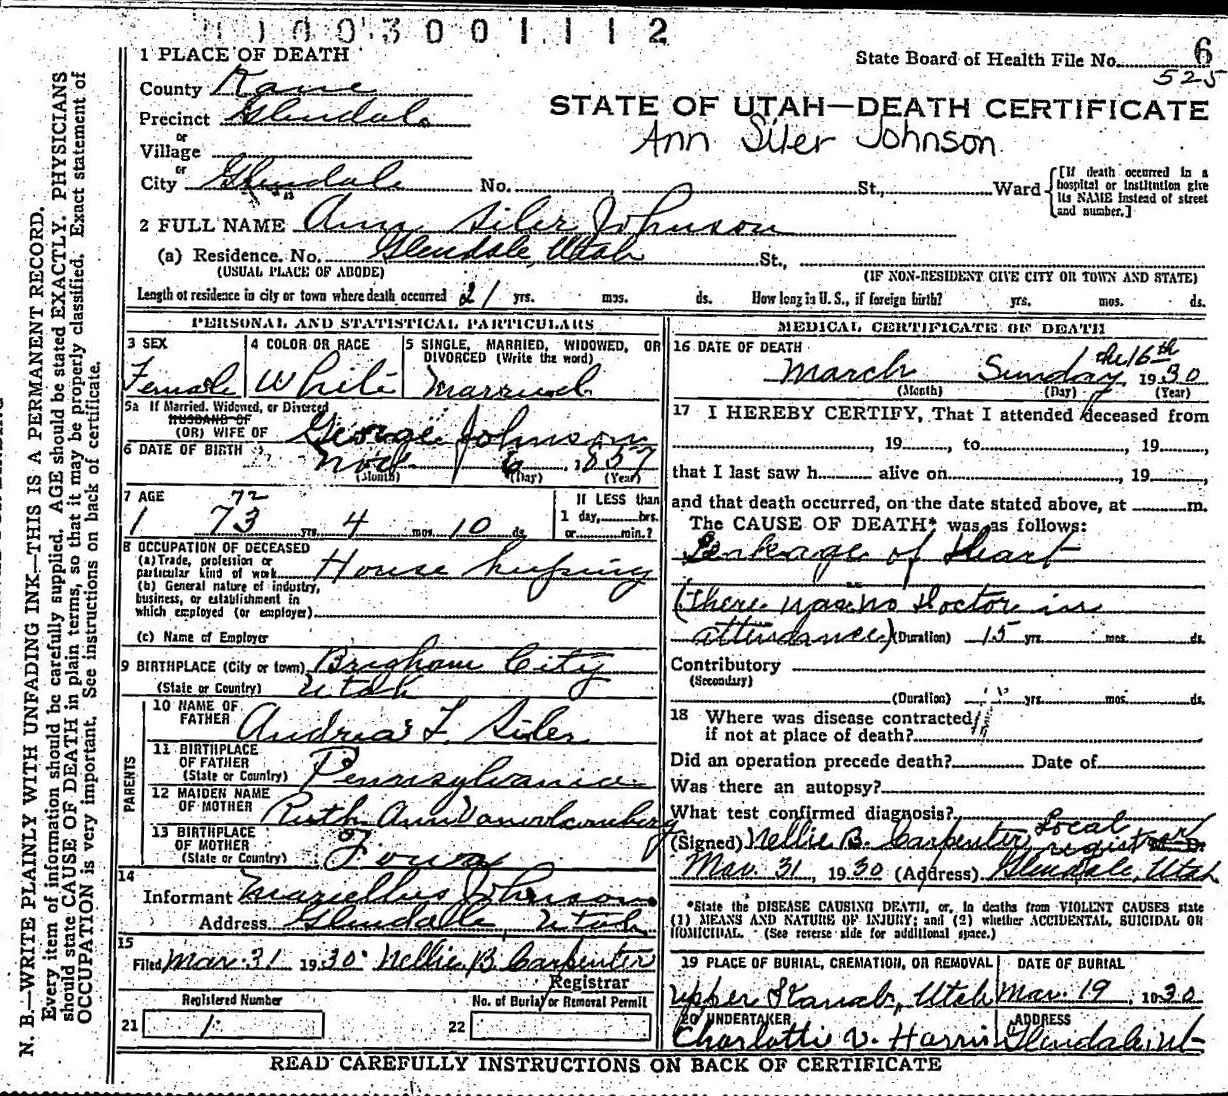 003001112
1 PLACE OF DEATH
State Board of Health File No. 6
525
County Kane
STATE OF UTAH—DEATH CERTIFICATE
Precinct Glendale
Ann Siler Johnson
or
Village
or
City Glendale No. St., Ward
[If death occurred in a hospital or institution give its NAME instead of street and number.]
2 FULL NAME Ann Siler Johnson
(a) Residence. No. Glendale, Utah St.,
(USUAL PLACE OF ABODE) (IF NON-RESIDENT GIVE CITY OR TOWN AND STATE)
Length of residence in city or town where death occurred 21 yrs. mos. ds. How long in U. S., if foreign birth? yrs. mos. ds.
PERSONAL AND STATISTICAL PARTICULARS
3 SEX 4 COLOR OR RACE 5 SINGLE, MARRIED, WIDOWED, OR DIVORCED (Write the word)
Female White Married
5a If Married, Widowed, or Divorced
HUSBAND OF
(OR) WIFE OF George Johnson
6 DATE OF BIRTH Nov. 6 1857
(Month) (Day) (Year)
7 AGE 72 If LESS than
1 73 yrs. 4 mos. 10 ds. 1 day, hrs.
or min.?
8 OCCUPATION OF DECEASED
(a) Trade, profession or
particular kind of work House keeping
(b) General nature of industry,
business, or establishment in
which employed (or employer)
(c) Name of Employer
9 BIRTHPLACE (City or town) Brigham City
(State or Country) Utah
PARENTS
10 NAME OF
FATHER Andrea F. Siler
11 BIRTHPLACE
OF FATHER
(State or Country) Pennsylvania
12 MAIDEN NAME
OF MOTHER Ruth Ann
13 BIRTHPLACE
OF MOTHER
(State or Country) Iowa
14
Informant Marcellus Johnson
Address Glendale, Utah
15
Filed Mar. 31 1930 Nellie B Carpenter
Registrar
Registered Number No. of Burial or Removal Permit
21 1 22
MEDICAL CERTIFICATE OF DEATH
16 DATE OF DEATH
March Sunday the 16th, 1930
(Month) (Day) (Year)
17 I HEREBY CERTIFY, That I attended deceased from
, 19 , to , 19 ,
that I last saw h alive on , 19 ,
and that death occurred, on the date stated above, at m.
The CAUSE OF DEATH* was as follows:
Leakage of Heart
(There was no Doctor in
attendance) (Duration) 15 yrs. mos. ds.
Contributory
(Secondary)
(Duration) yrs. mos. ds.
18 Where was disease contracted
if not at place of death?
Did an operation precede death? Date of
Was there an autopsy?
What test confirmed diagnosis?
(Signed) Nellie B. Carpenter, Local registrar M. D.
Mar. 31, 1930 (Address) Glendale, Utah
*State the DISEASE CAUSING DEATH, or, in deaths from VIOLENT CAUSES state
(1) MEANS AND NATURE OF INJURY; and (2) whether ACCIDENTAL, SUICIDAL OR
HOMICIDAL. (See reverse side for additional space.)
19 PLACE OF BURIAL, CREMATION, OR REMOVAL DATE OF BURIAL
Upper Kanab, Utah Mar. 19, 1930
20 UNDERTAKER ADDRESS
Charlotte V. Harris Glendale, Ut
READ CAREFULLY INSTRUCTIONS ON BACK OF CERTIFICATE
N. B.—WRITE PLAINLY WITH UNFADING INK—THIS IS A PERMANENT RECORD.
Every item of information should be carefully supplied. AGE should be stated EXACTLY. PHYSICIANS
should state CAUSE OF DEATH in plain terms, so that it may be properly classified. Exact statement of
OCCUPATION is very important. See instructions on back of certificate.